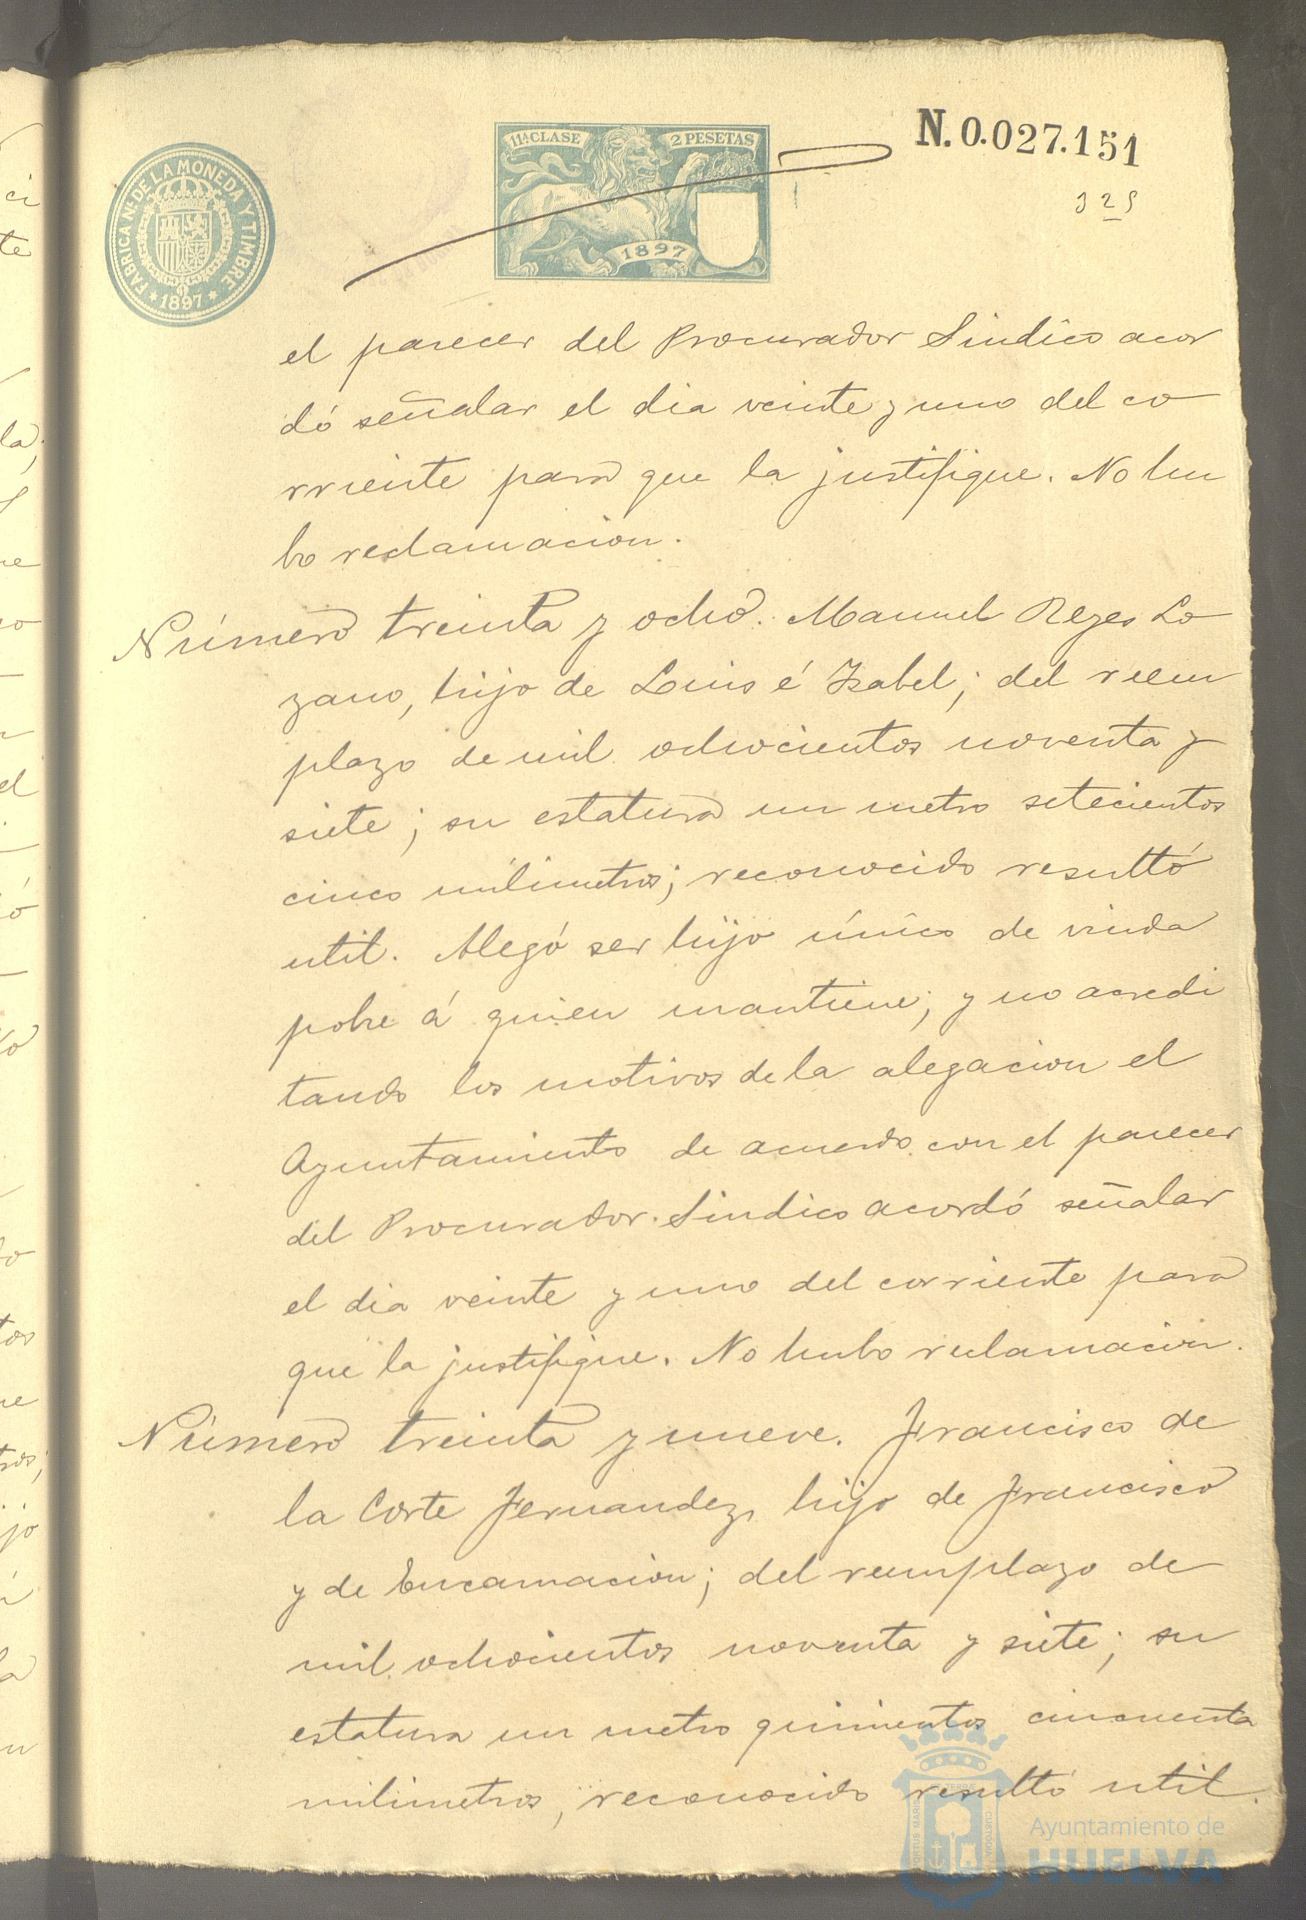 11ª CLASE 2 PESETAS
N. 0.027.151
FABRICA Nal. DE LA MONEDA Y TIMBRE
* 1897 *
1897
el parecer del Procurador Sindico acor
dó señalar el dia veinte y uno del co
rriente para que la justifique. No hu
bo reclamacion.
Número treinta y ocho. Manuel Reyes Lo
zano, hijo de Luis é Isabel; del reem
plazo de mil ochocientos noventa y
siete; su estatura un metro setecientos
cinco milimetros; reconocido resultó
util. Alegó ser hijo único de viuda
pobre á quien mantiene; y no acredi
tando los motivos de la alegacion el
Ayuntamiento de acuerdo con el parecer
del Procurador Sindico acordó señalar
el dia veinte y uno del corriente para
que la justifique. No hubo reclamacion.
Número treinta y nueve. Francisco de
la Corte Fernandez, hijo de Francisco
y de Encarnacion; del reemplazo de
mil ochocientos noventa y siete; su
estatura un metro quinientos cincuenta
milimetros, reconocido resultó util.
Ayuntamiento de
HUELVA